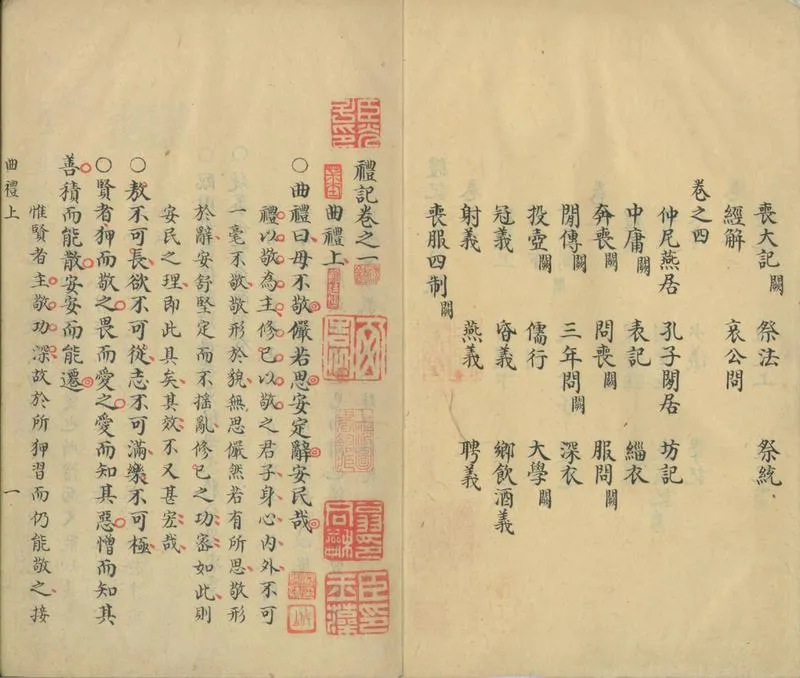 喪大記闕 祭法 祭統
經解 哀公問
卷之四
仲尼燕居 孔子閒居 坊記
中庸闕 表記 緇衣
奔喪闕 問喪闕 服問闕
閒傳闕 三年問闕 深衣
投壺闕 儒行 大學闕
冠義 昏義 鄉飲酒義
射義 燕義 聘義
喪服四制闕
禮記卷之一
曲禮上
○曲禮曰毋不敬儼若思安定辭安民哉
禮以敬為主修已以敬之君子身心內外不可
一毫不敬敬形於貌無思儼然若有所思敬形
於辭安舒堅定而不搖亂修已之功密如此則
安民之理即此具矣其效不又甚宏哉
○敖不可長欲不可從志不可滿樂不可極
○賢者狎而敬之畏而愛之愛而知其惡憎而知其
善積而能散安安而能遷
惟賢者主敬功深故於所狎習而仍能敬之接
曲禮上 一